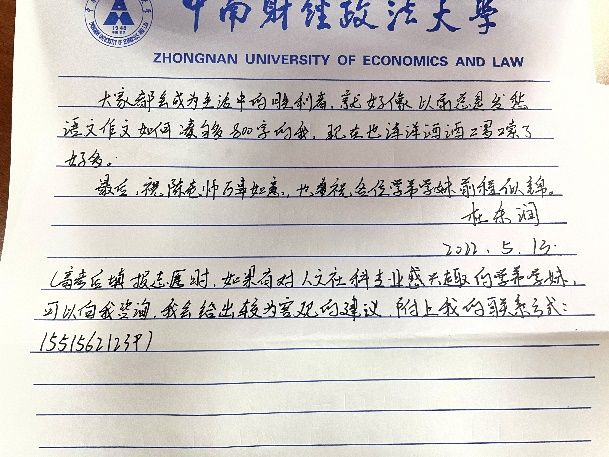 中南财经政法大学
ZHONGNAN UNIVERSITY OF ECONOMICS AND LAW
大家都会成为生活中的胜利者，就好像以前总是发愁
语文作文如何凑够800字的我，现在也洋洋洒洒口写了
好多。
最后，祝陈老师万事如意，也恭祝各位学弟学妹前程似锦。
杜东润
2022.5.13
(高考后填报志愿时，如果有对人文社科专业感兴趣的学弟学妹，
可以向我咨询，我会给出较为客观的建议，附上我的联系方式：